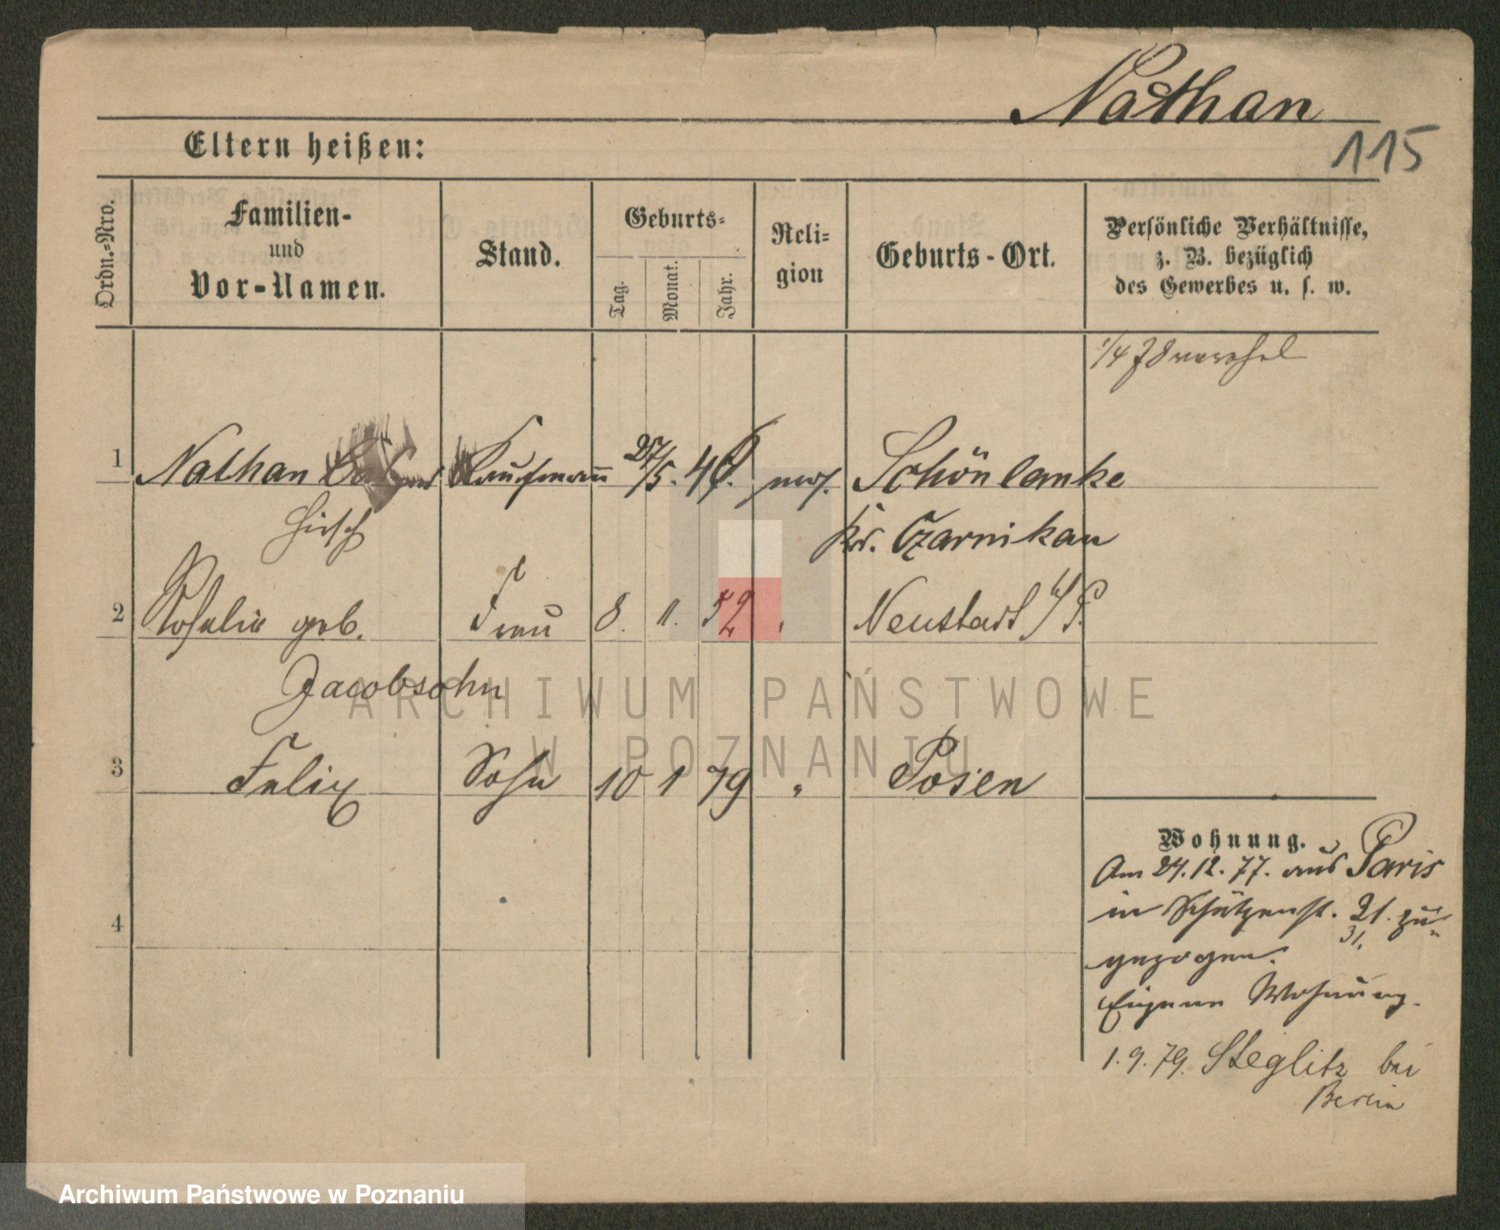 Nathan
115
Eltern heißen:
Ordn.-Nro.
Familien-
und
Vor-Namen.
Stand.
Geburts-
Tag.
Monat.
Jahr.
Reli-
gion
Geburts-Ort.
Persönliche Verhältnisse,
z. B. bezüglich
des Gewerbes u. s. w.
1/4
1 Nathan Kaufmann 27/5. mos. Schönlanke
Hirsch Kr. Czarnikau
2 Rosalie geb. Frau 8. 11. 52 Neustadt b/P.
Jacobsohn
3 Felix Sohn 10 1 79 " Posen
4
Wohnung.
Am 24.12.77. aus Paris
in Schützenst. 21. zu-
31.
gezogen.
Eigene Wohnung.
1.9.79. Steglitz bei
Berlin
ARCHIWUM PAŃSTWOWE
W POZNANIU
Archiwum Państwowe w Poznaniu